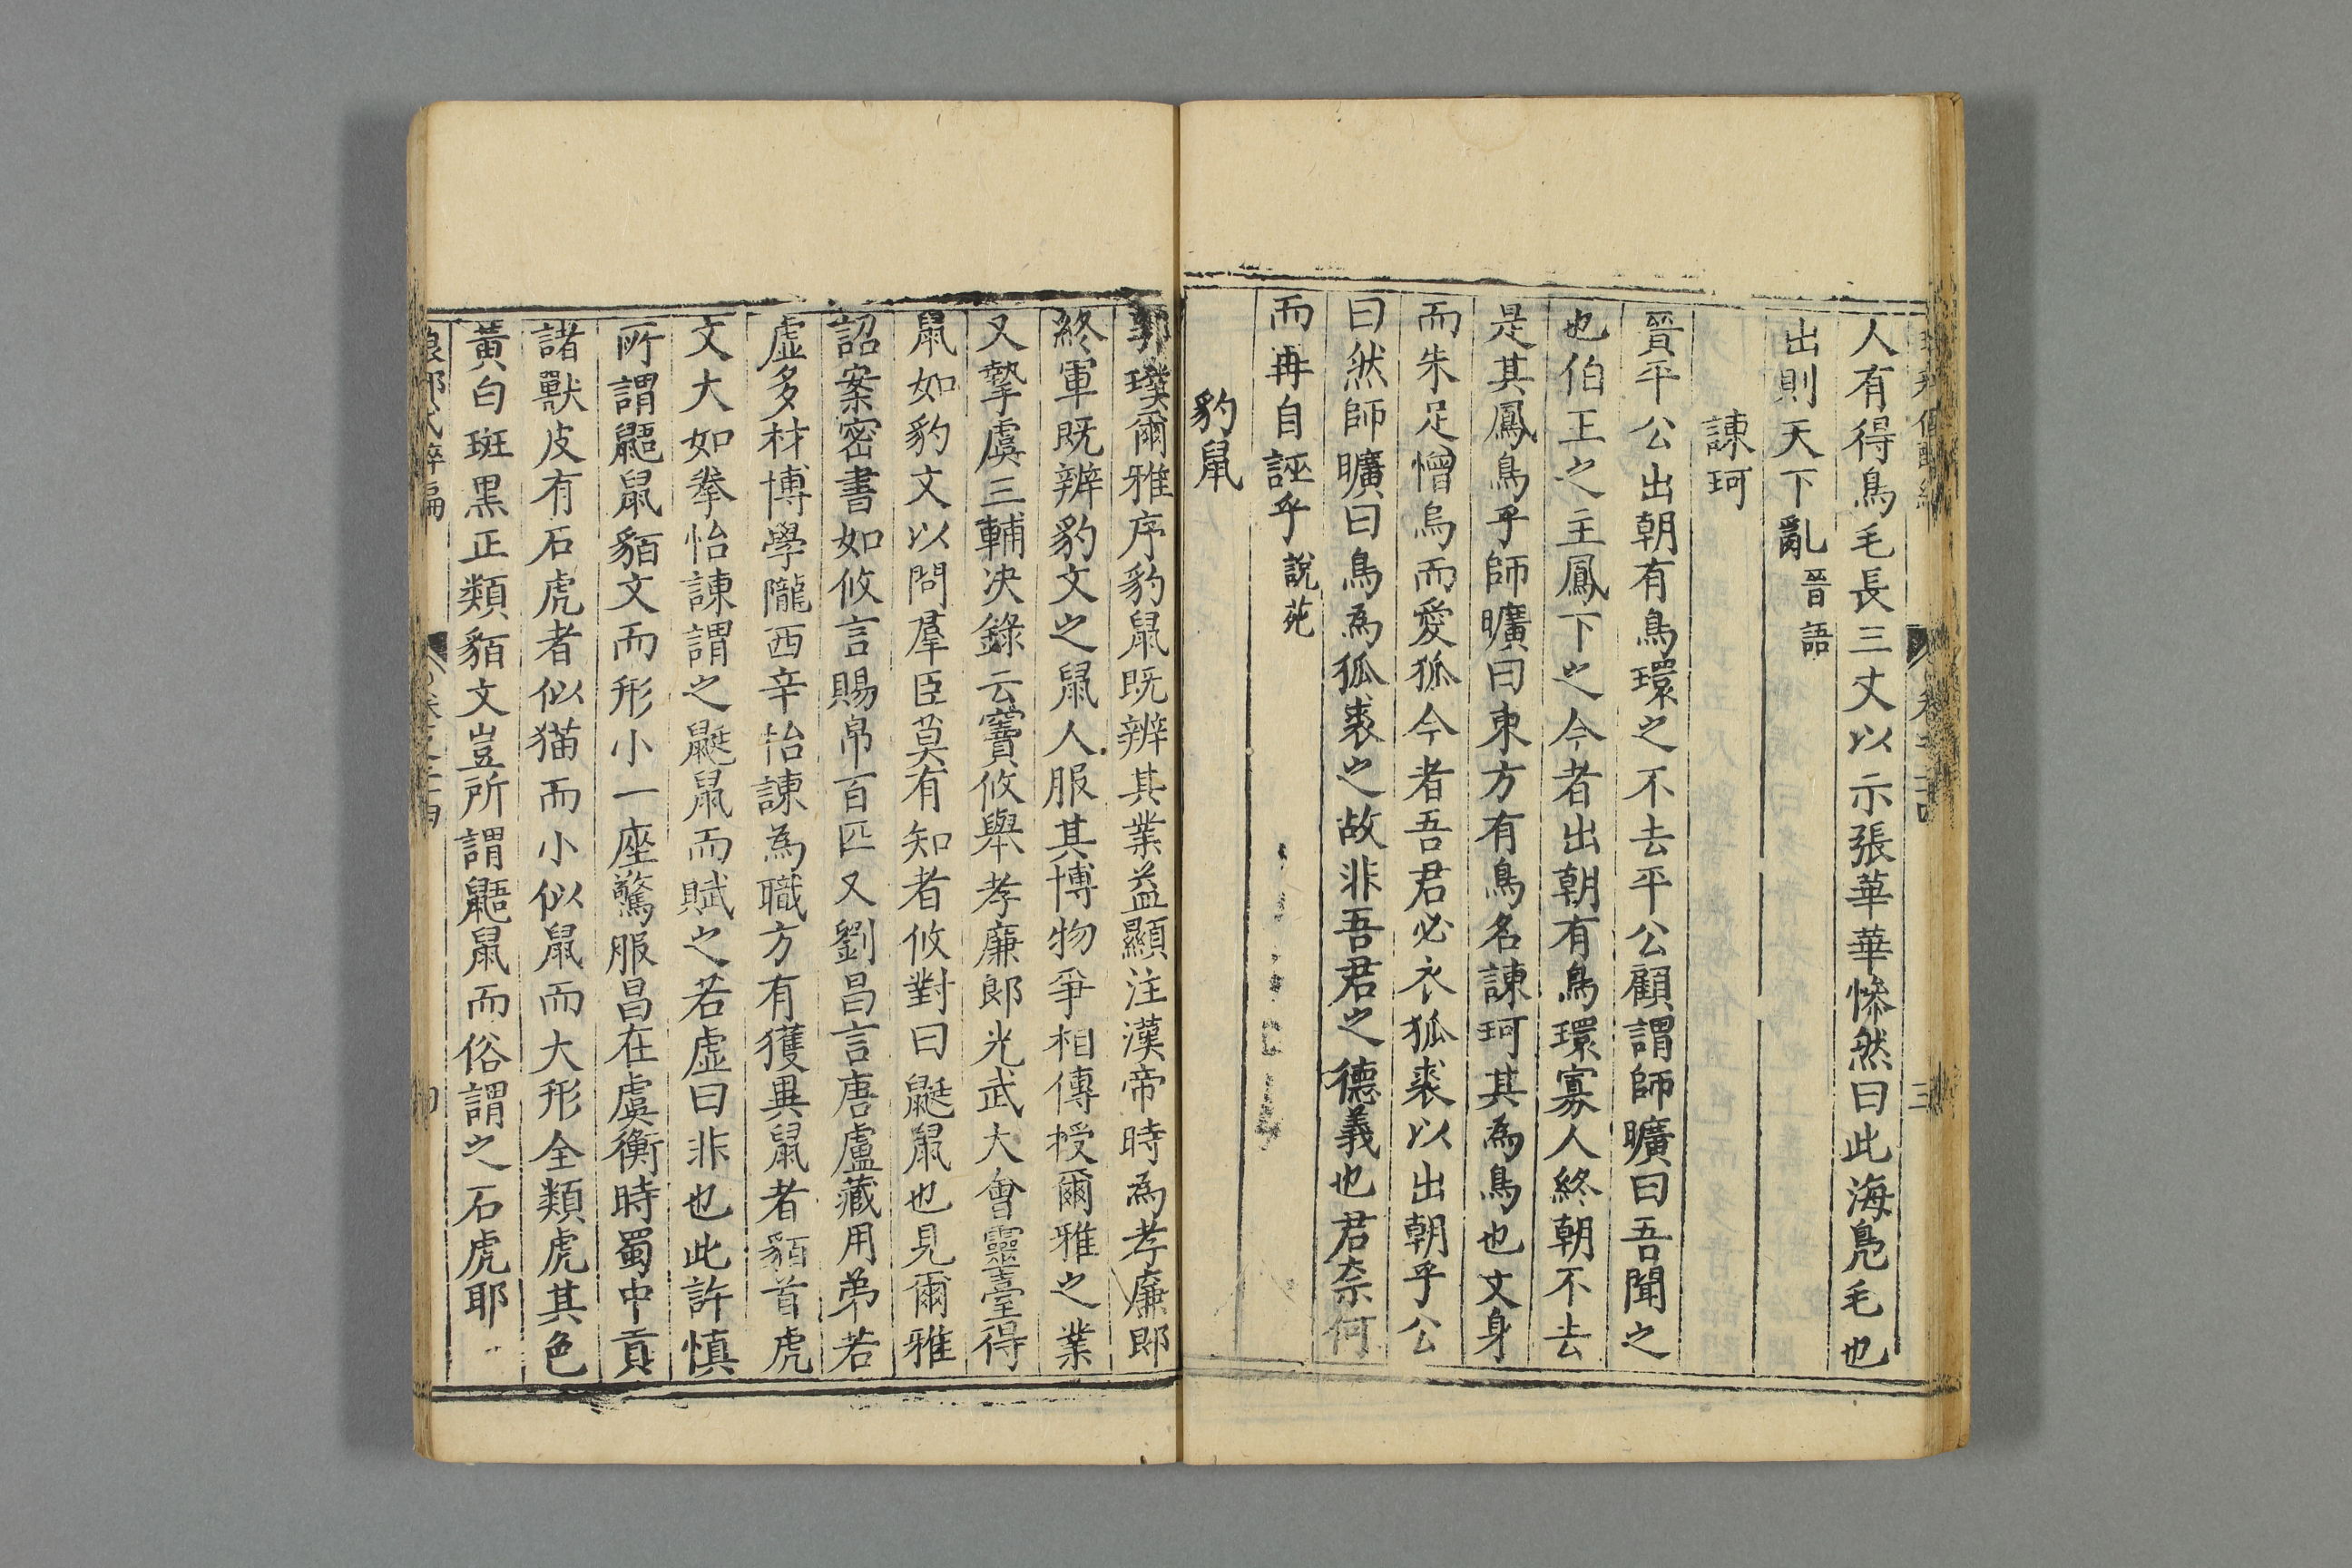 人有得鳥毛長三丈以示張華華慘然曰此海鳧毛也
出則天下亂晉語
諫珂
晉平公出朝有鳥環之不去平公顧謂師曠曰吾聞之
也伯王之主鳳下之今者出朝有鳥環寡人終朝不去
是其鳳鳥乎師曠曰東方有鳥名諫珂其為鳥也文身
而朱足憎鳥而愛狐今者吾君必衣狐裘以出朝乎公
曰然師曠曰鳥為狐裘之故非吾君之德義也君奈何
而再自誣乎說苑
豹鼠
郭璞爾雅序豹鼠既辨其業益顯注漢帝時為孝廉郎
終軍既辨豹文之鼠人服其博物爭相傳授爾雅之業
又摯虞三輔决錄云竇攸舉孝廉郎光武大會靈臺得
鼠如豹文以問羣臣莫有知者攸對曰鼮鼠也見爾雅
詔案密書如攸言賜帛百匹又劉昌言唐盧藏用弟若
虛多材博學隴西辛怡諫為職方有獲異鼠者貊首虎
文大如拳怡諫謂之鼮鼠而賦之若虛曰非也此許慎
所謂鼯鼠貊文而形小一座驚服昌在虞衡時蜀中貢
諸獸皮有石虎者似猫而小似鼠而大形全類虎其色
黃白斑黑正類貊文豈所謂鼯鼠而俗謂之石虎耶